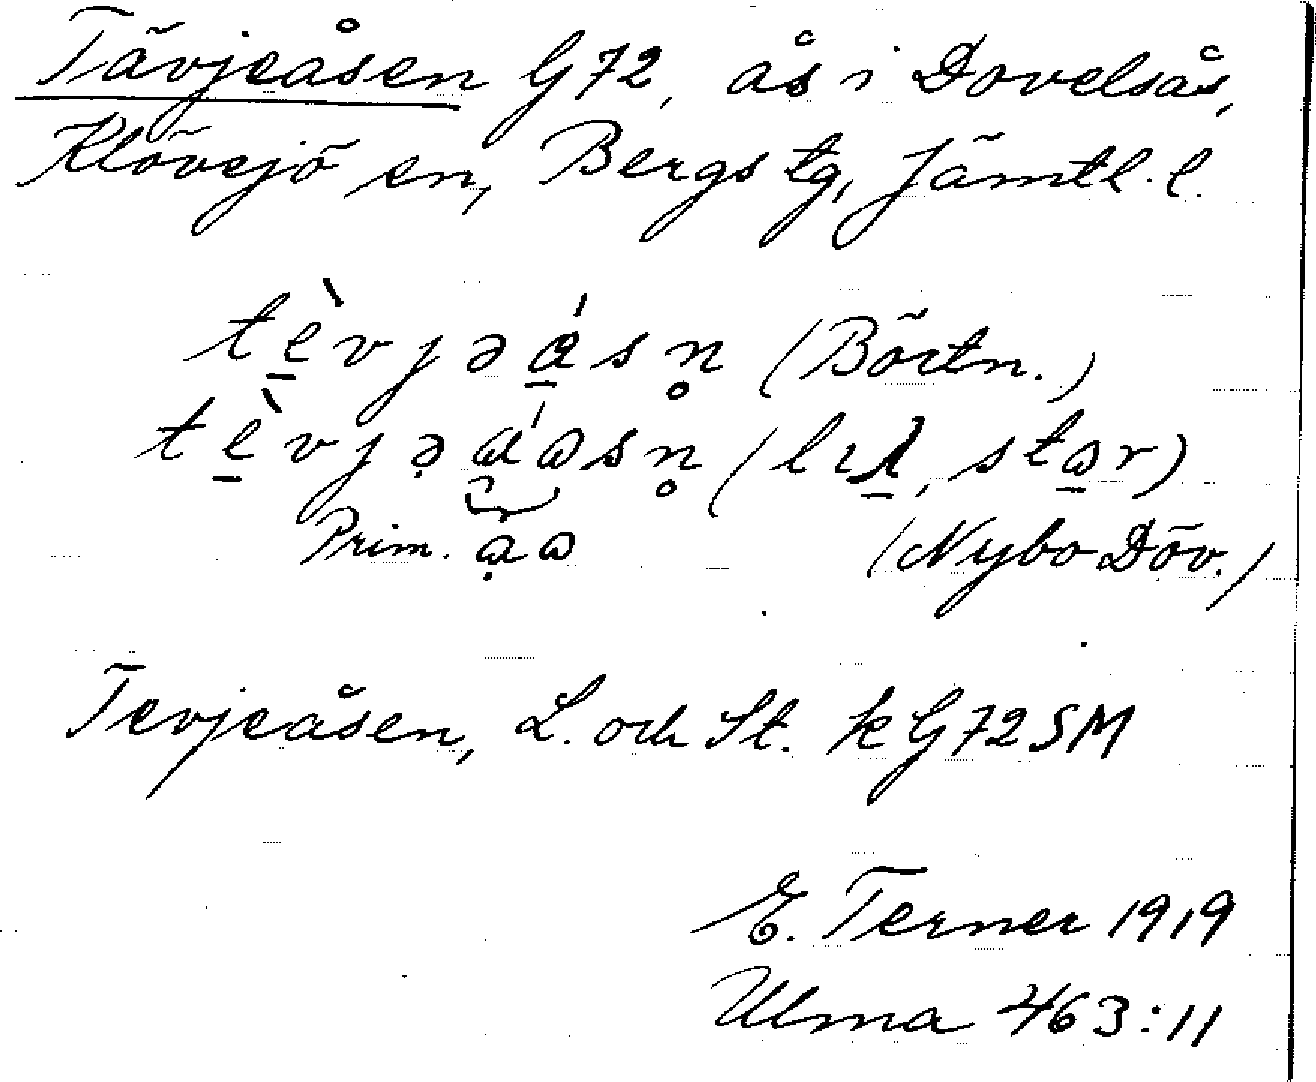 Tävjeåsen G72, ås i Dovelsås,
Klövsjö sn, Bergs tg, Jämtl. l.
tèvjəásn̥ (Börtn.)
tèvjəáɷsn̥ (lıλ, stɷr)
Prim. ạɷ (Nybo Döv.)
Tevjeåsen, L. och St. k G72SM
E. Terner 1919
Ulma 463:11